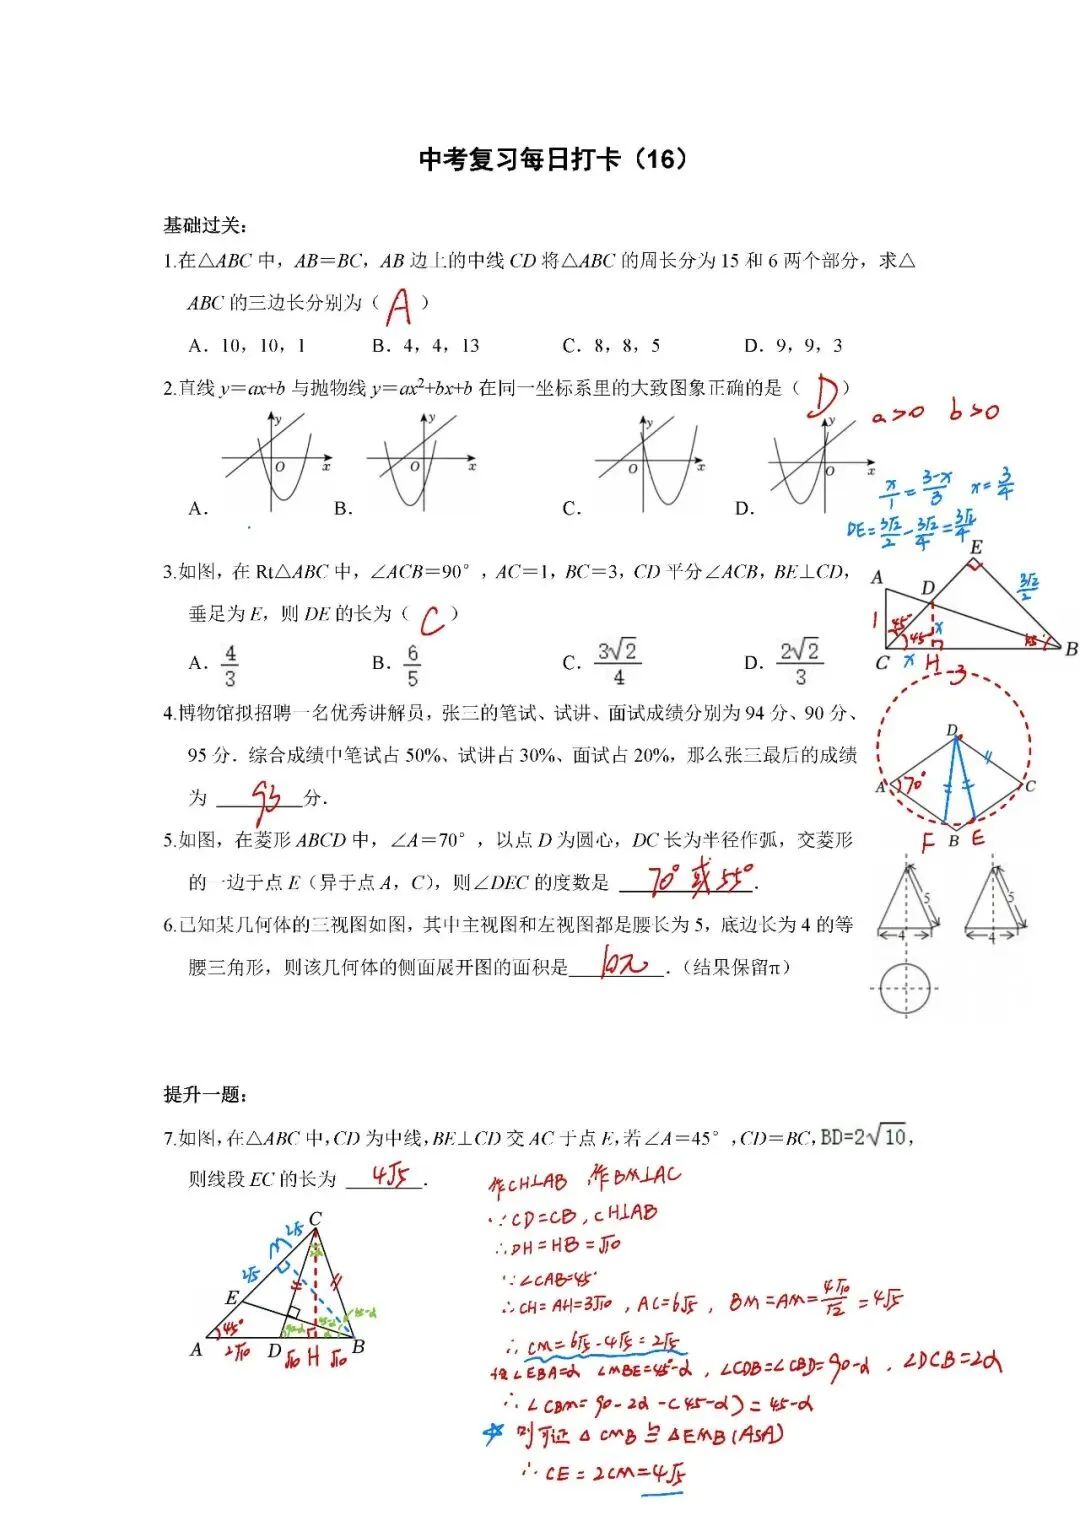 中考复习每日打卡（16）
基础过关：
1.在△ABC中，AB＝BC，AB边上的中线CD将△ABC的周长分为15和6两个部分，求△
ABC的三边长分别为（ A ）
A．10，10，1 B．4，4，13 C．8，8，5 D．9，9，3
2.直线y＝ax+b与抛物线y＝ax²+bx+b在同一坐标系里的大致图象正确的是（ D ）
a>0 b>0
y O x y O x y O x y O x
A． B． C． D．
x/1=(3-x)/3 x=3/4
DE=3√2/2-3√2/4=3√2/4
3.如图，在Rt△ABC中，∠ACB＝90°，AC＝1，BC＝3，CD平分∠ACB，BE⊥CD，
垂足为E，则DE的长为（ C ）
A．4/3 B．6/5 C．3√2/4 D．2√2/3
E
A D 3√2/2
1 45° 45° x 45°
C x H B
3
4.博物馆拟招聘一名优秀讲解员，张三的笔试、试讲、面试成绩分别为94分、90分、
95分．综合成绩中笔试占50%、试讲占30%、面试占20%，那么张三最后的成绩
为 93 分．
D
A 70° C
F B E
5.如图，在菱形ABCD中，∠A＝70°，以点D为圆心，DC长为半径作弧，交菱形
的一边于点E（异于点A，C），则∠DEC的度数是 70°或55°．
6.已知某几何体的三视图如图，其中主视图和左视图都是腰长为5，底边长为4的等
腰三角形，则该几何体的侧面展开图的面积是 10π ．（结果保留π）
5 5
4 4
提升一题：
7.如图，在△ABC中，CD为中线，BE⊥CD交AC于点E，若∠A＝45°，CD＝BC，BD=2√10，
则线段EC的长为 4√5 ．
作CH⊥AB 作BM⊥AC
∵CD=CB，CH⊥AB
∴DH=HB=√10
∵∠CAB=45°
∴CH=AH=3√10，AC=6√5，BM=AM=4√10/√2=4√5
∴CM=6√5-4√5=2√5
设∠EBA=α ∠MBE=45°-α，∠CDB=∠CBD=90-α，∠DCB=2α
∴∠CBM=90-2α-(45-α)=45-α
☆ 则可证△CMB≌△EMB(ASA)
∴CE=2CM=4√5
C
M 2√5
2√5
E
45° 45-α
A 2√10 D √10 H √10 B